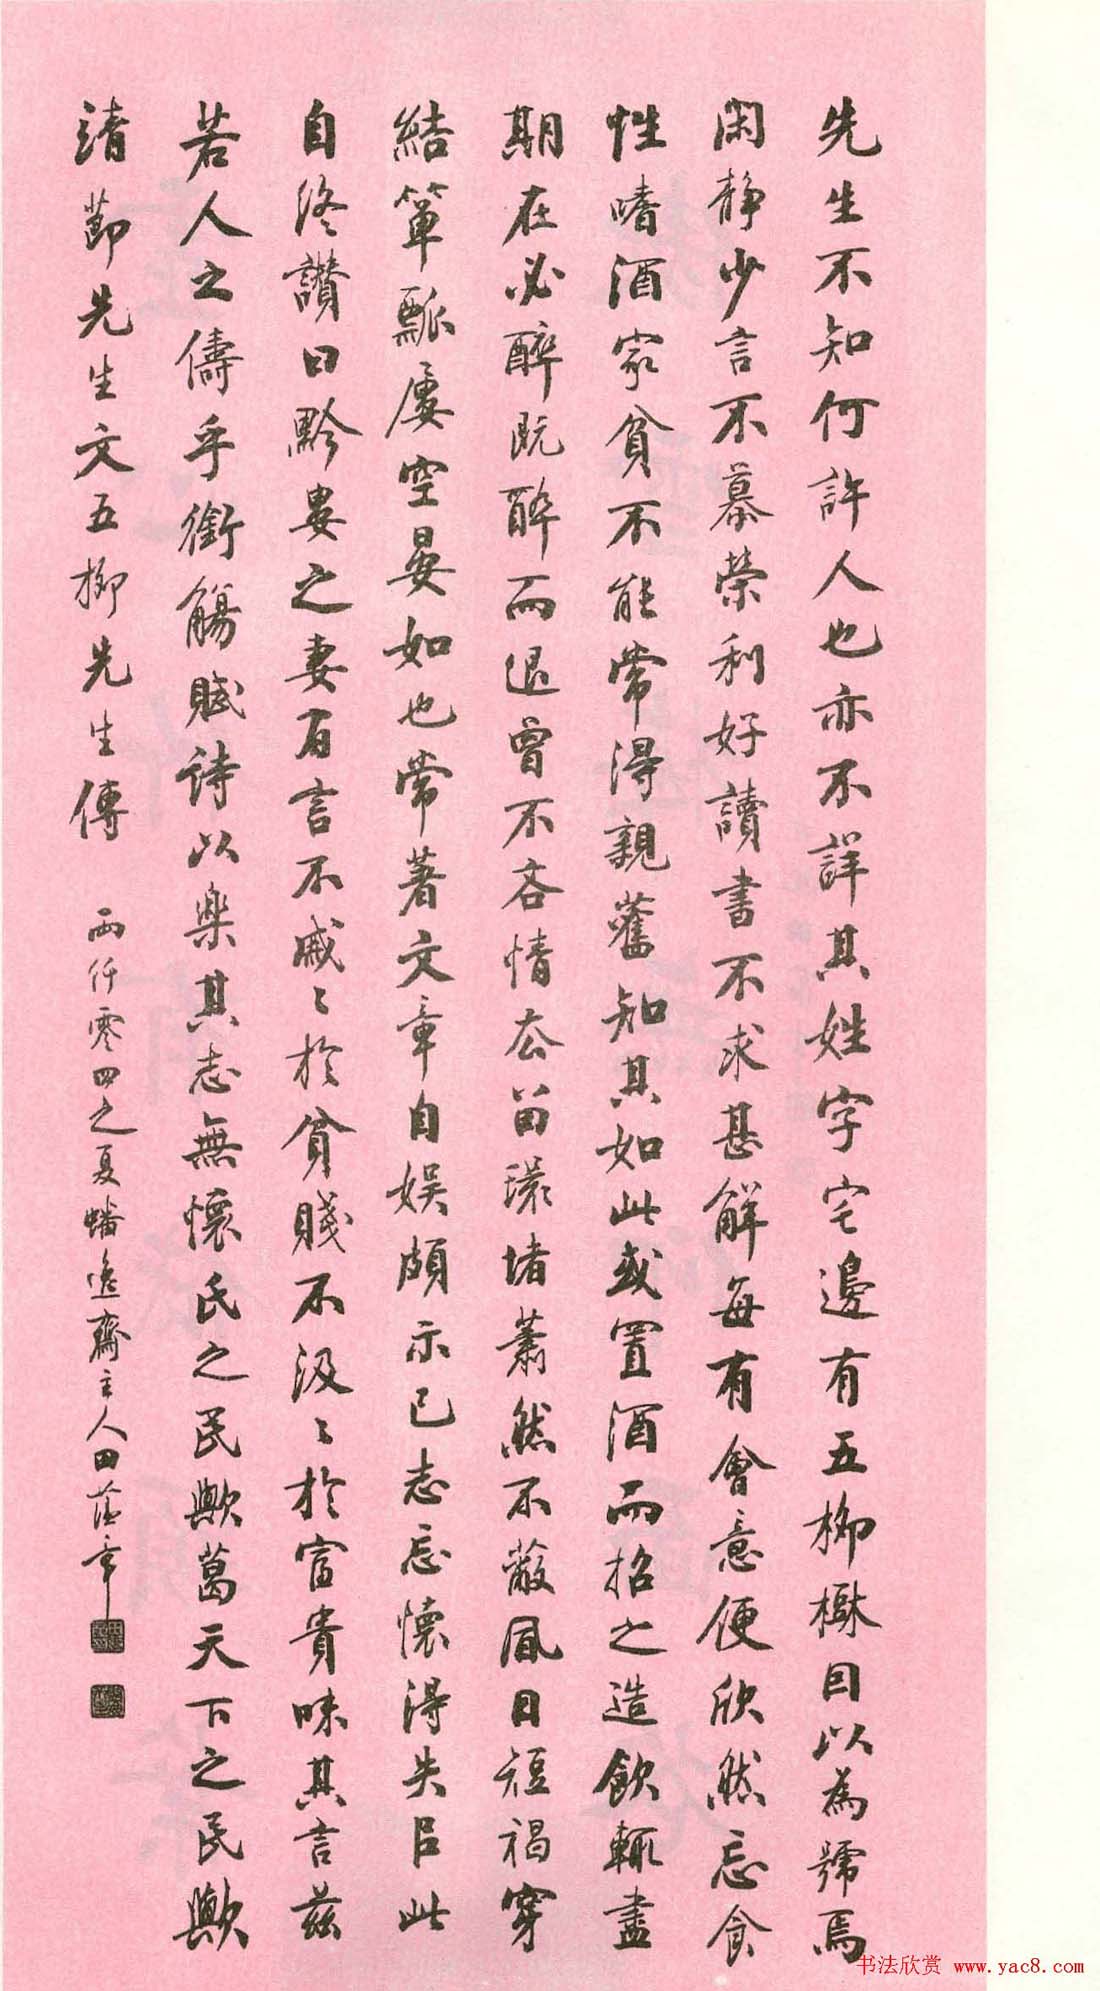 先生不知何許人也亦不詳其姓字宅邊有五柳樹因以為號焉
閑静少言不慕榮利好讀書不求甚解每有會意便欣然忘食
性嗜酒家貧不能常得親舊知其如此或置酒而招之造飲輒盡
期在必醉既醉而退曾不吝情去留環堵蕭然不蔽風日短褐穿
結箪瓢屢空晏如也常著文章自娛頗示己志忘懷得失以此
自終讚曰黔婁之妻有言不戚〻於貧賤不汲〻於富貴味其言茲
若人之儔乎銜觴賦詩以樂其志無懷氏之民歟葛天下之民歟
靖節先生文五柳先生傳 兩仟零四之夏蟠逸齋主人田蘊章
书法欣赏 www.yac8.com